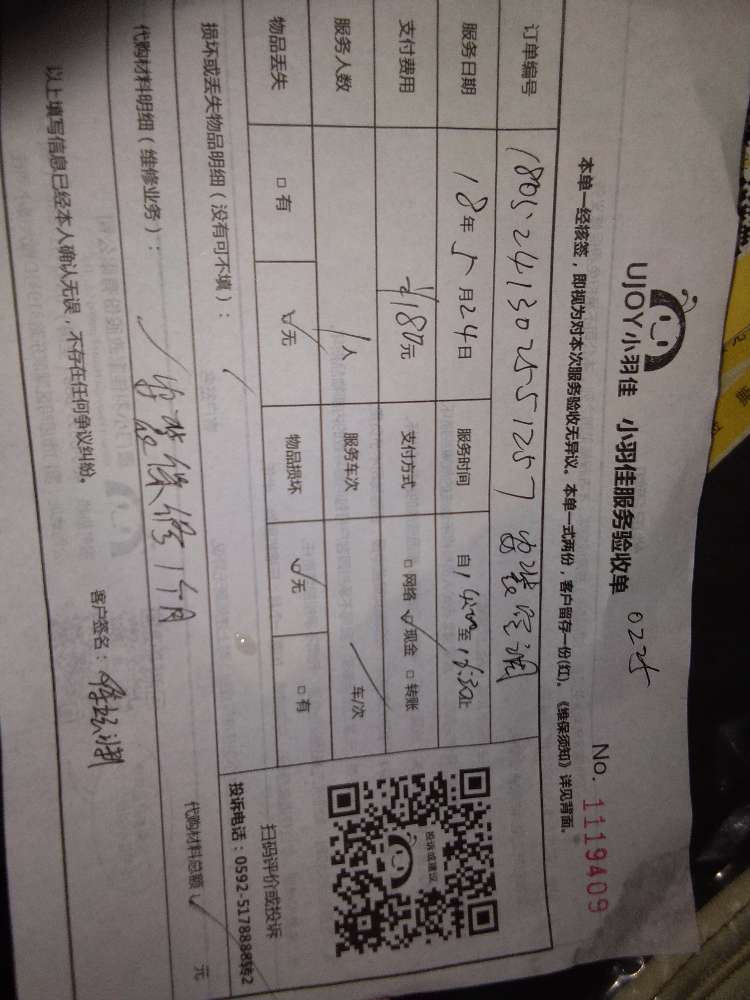 UJOY小羽佳 小羽佳服务验收单 0225 No. 1119409
本单一经核签，即视为对本次服务验收无异议。本单一式两份，客户留存一份(红)。《维保须知》详见背面。
订单编号 1805241302551257 安装空调
服务日期 18年5月24日 服务时间 自 至 止
支付费用 ¥180元 支付方式 □ 网络 ☑ 现金 □ 转账
服务人数 1人 服务车次 / 车/次
物品丢失 □ 有 ☑ 无 物品损坏 ☑ 无 □ 有
损坏或丢失物品明细（没有可不填）：
代购材料明细（维修业务）： 安装保修1个月
代购材料总额 元
以上填写信息已经本人确认无误，不存在任何争议纠纷。 客户签名：
投诉或建议
扫码评价或投诉
投诉电话：0592-5178888转2